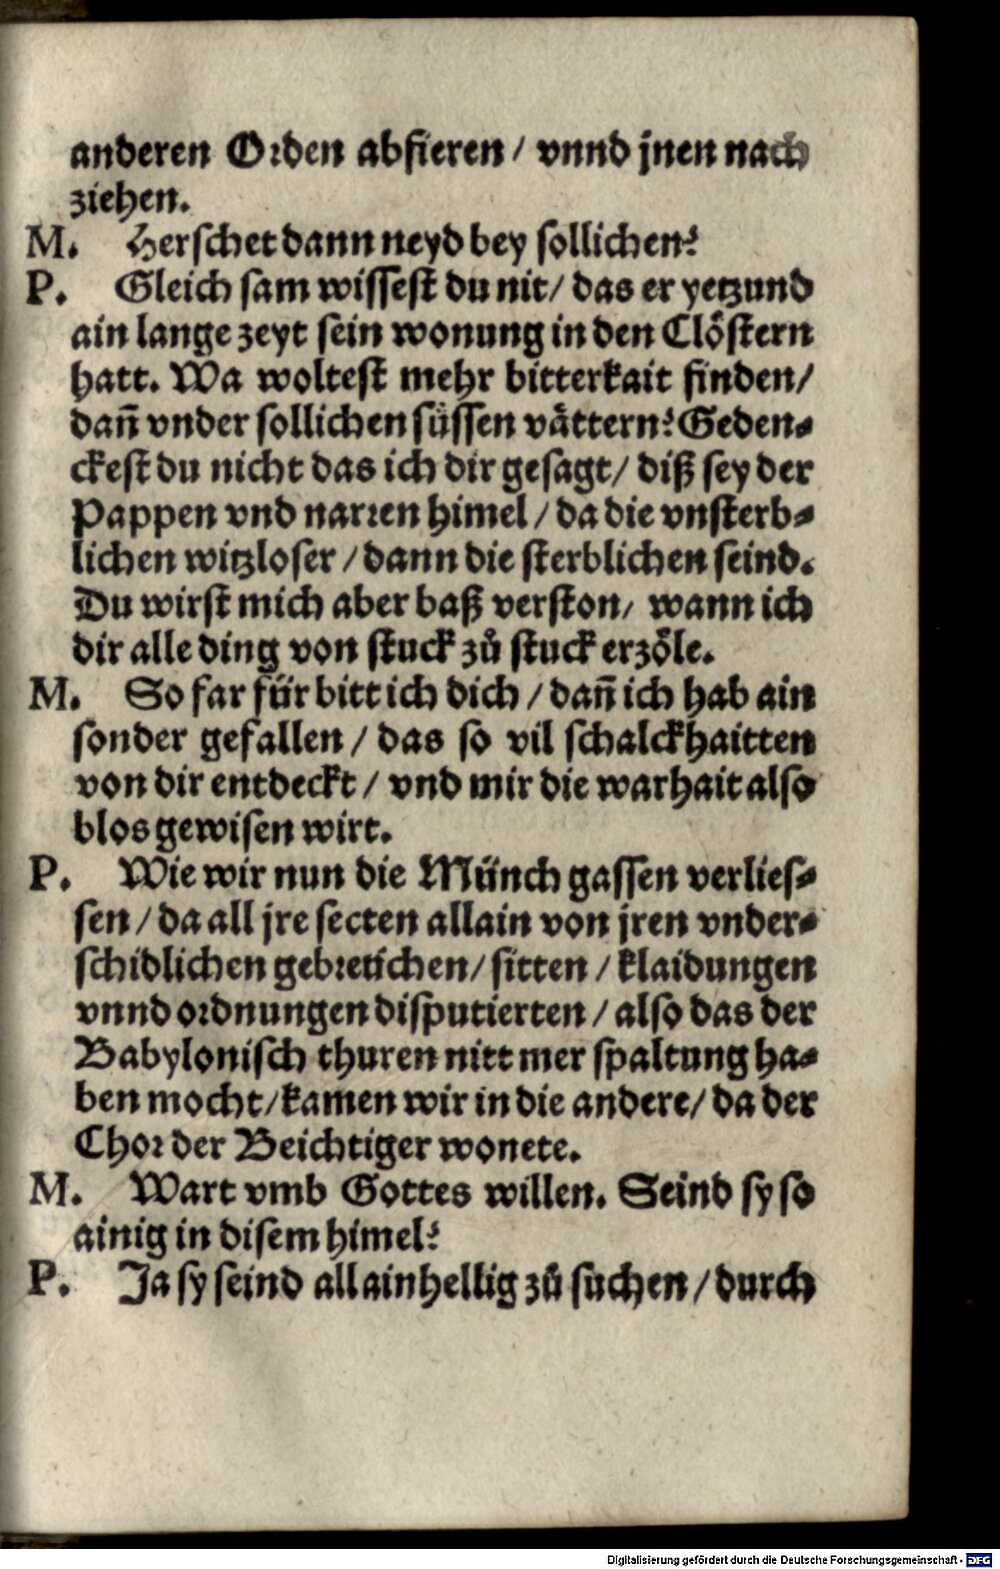 anderen Orden abfieren / vnnd jnen nach
ziehen.
M. Herschet dann neyd bey sollichen?
P. Gleich sam wissest du nit / das er yetzund
ain lange zeyt sein wonung in den Clöstern
hatt. Wa woltest mehr bitterkait finden /
dañ vnder sollichen süssen vättern? Geden⸗
ckest du nicht das ich dir gesagt / diß sey der
Pappen vnd narren himel / da die vnsterb⸗
lichen witzloser / dann die sterblichen seind.
Du wirst mich aber baß verston / wann ich
dir alle ding von stuck zů stuck erzöle.
M. So far für bitt ich dich / dañ ich hab ain
sonder gefallen / das so vil schalckhaitten
von dir entdeckt / vnd mir die warhait also
blos gewisen wirt.
P. Wie wir nun die Münch gassen verlies⸗
sen / da all jre secten allain von jren vnder⸗
schidlichen gebreüchen / sitten / klaidungen
vnnd ordnungen disputierten / also das der
Babylonisch thuren nitt mer spaltung ha⸗
ben mocht / kamen wir in die andere / da der
Chor der Beichtiger wonete.
M. Wart vmb Gottes willen. Seind sy so
ainig in disem himel?
P. Ja sy seind all ainhellig zů suchen / durch
Digitalisierung gefördert durch die Deutsche Forschungsgemeinschaft - DFG